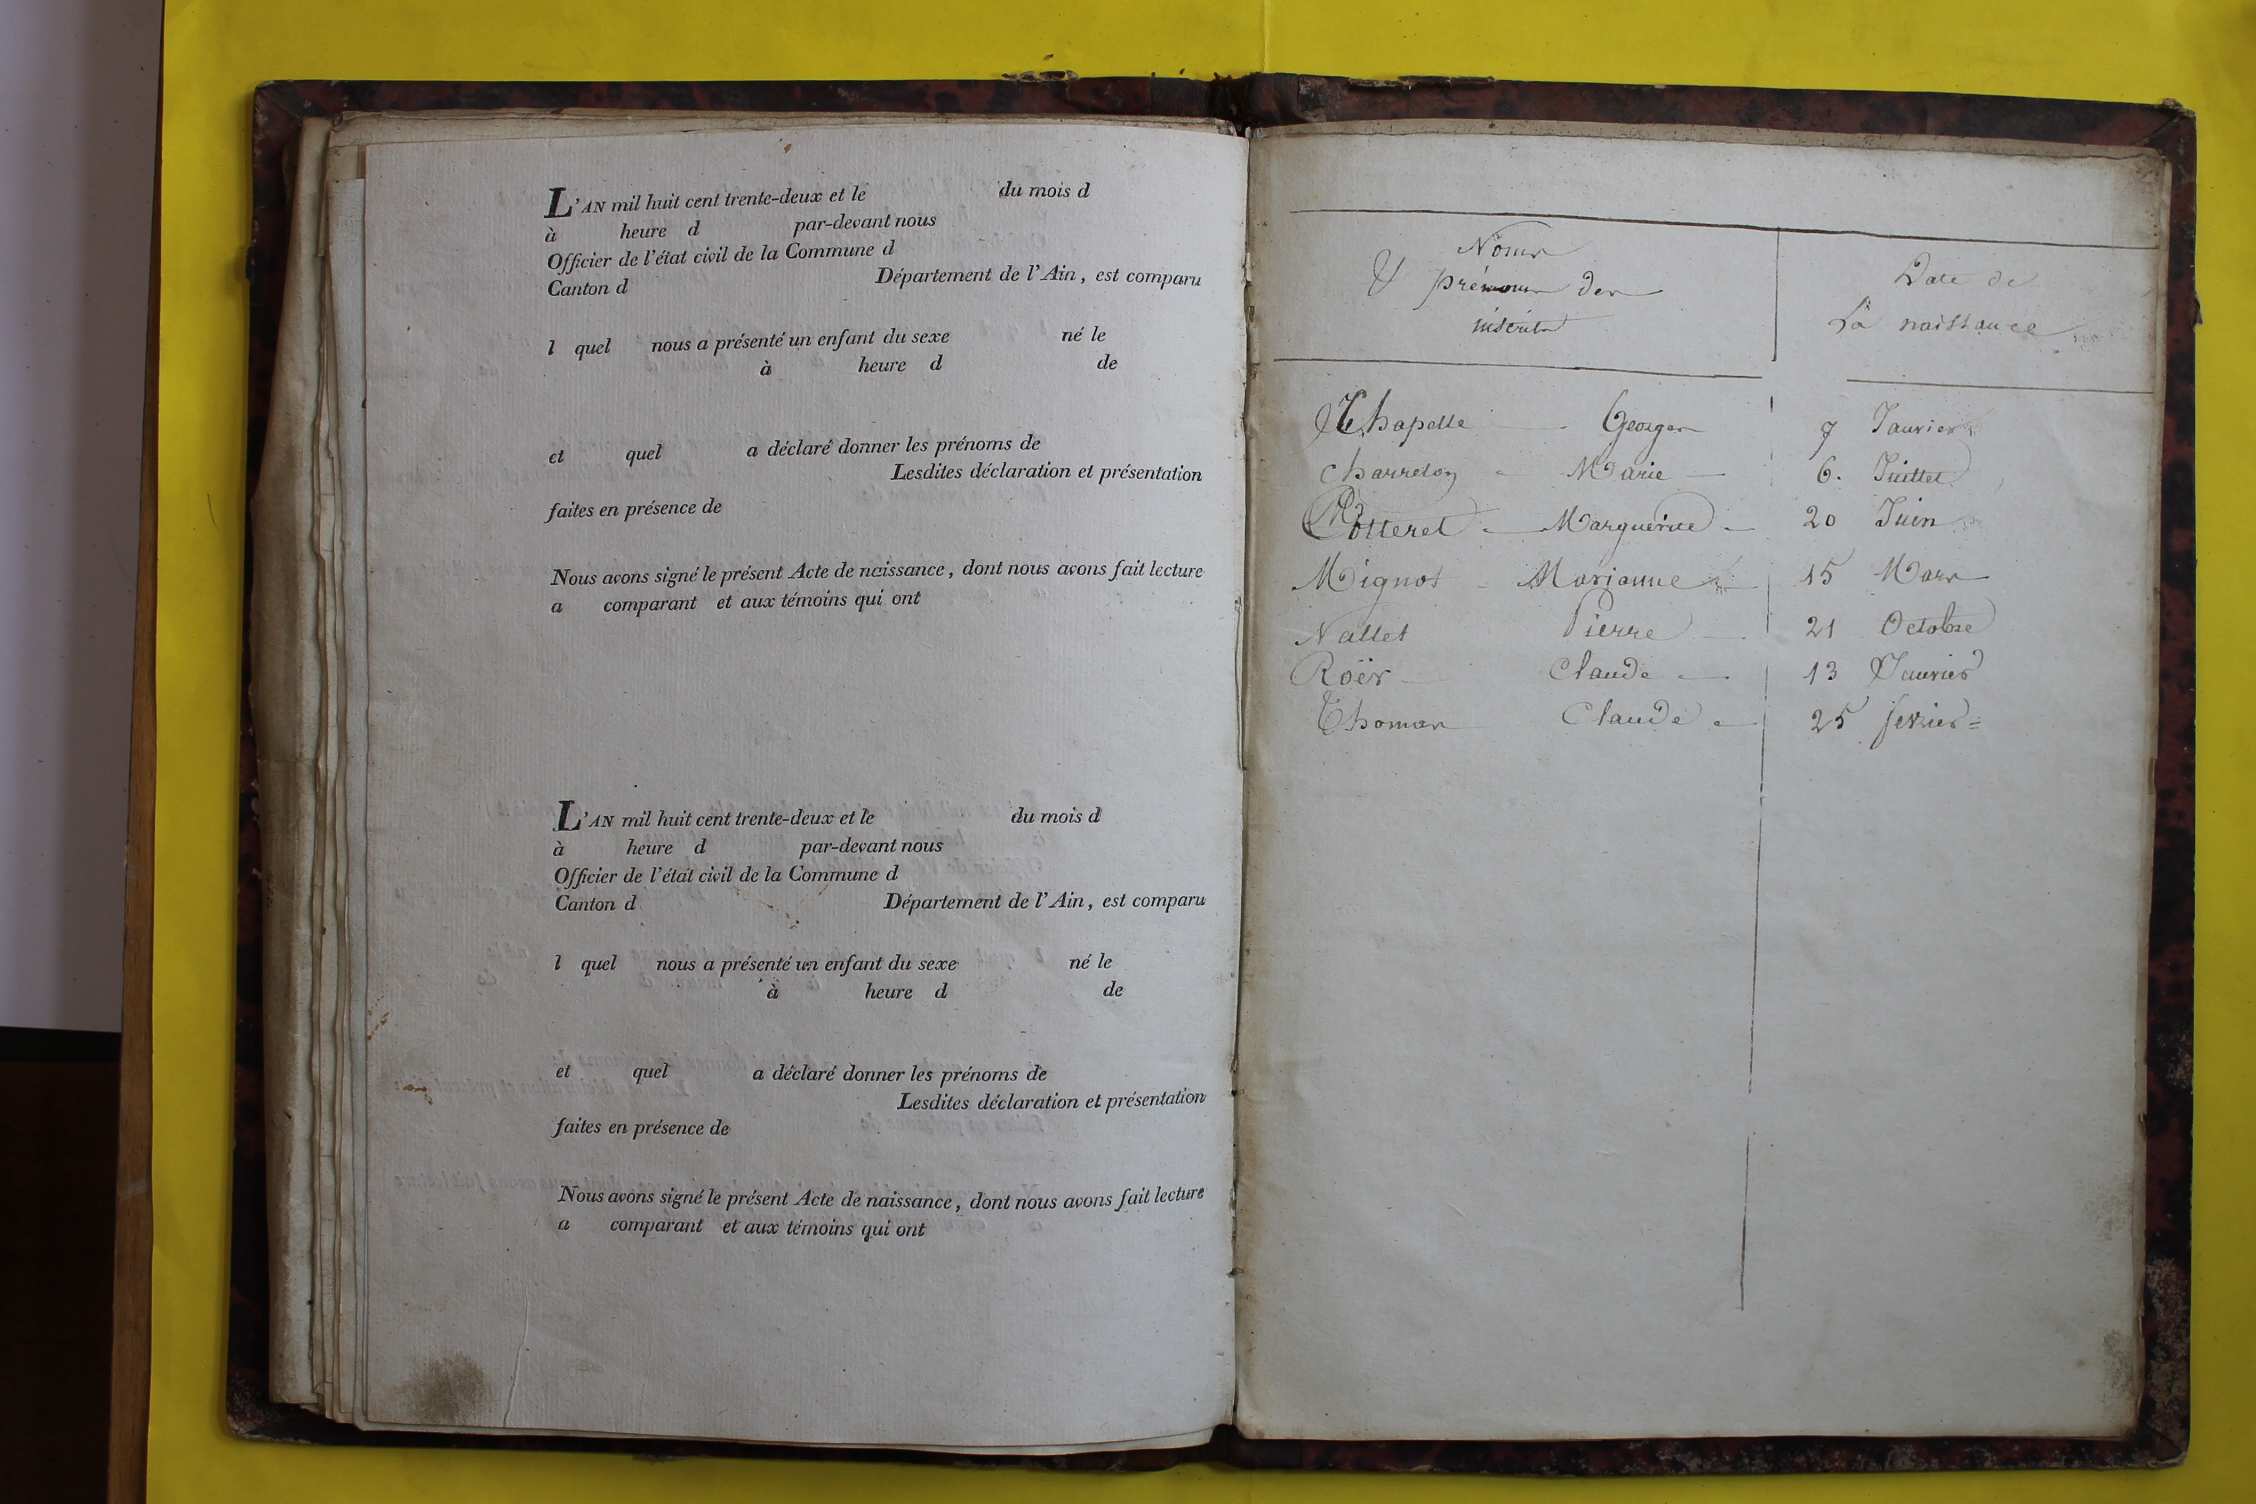 L'AN mil huit cent trente-deux et le du mois d
à heure d par-devant nous
Officier de l'état civil de la Commune d
Canton d Département de l'Ain, est comparu
l quel nous a présenté un enfant du sexe né le
à heure d de
et quel a déclaré donner les prénoms de
Lesdites déclaration et présentation
faites en présence de
Nous avons signé le présent Acte de naissance, dont nous avons fait lecture
a comparant et aux témoins qui ont
L'AN mil huit cent trente-deux et le du mois d
à heure d par-devant nous
Officier de l'état civil de la Commune d
Canton d Département de l'Ain, est comparu
l quel nous a présenté un enfant du sexe né le
à heure d de
et quel a déclaré donner les prénoms de
Lesdites déclaration et présentation
faites en présence de
Nous avons signé le présent Acte de naissance, dont nous avons fait lecture
a comparant et aux témoins qui ont
Noms
& prénoms des
inscrits
Date de
La naissance
Chapelle Georges 7 Janvier
Charreton Marie 6. Juillet
Marguerite 20 Juin
Mignot Marianne 15 Mars
Nallet Pierre 21 Octobre
Roër Claude 13 Janvier
Thomas Claude 25 fevrier =